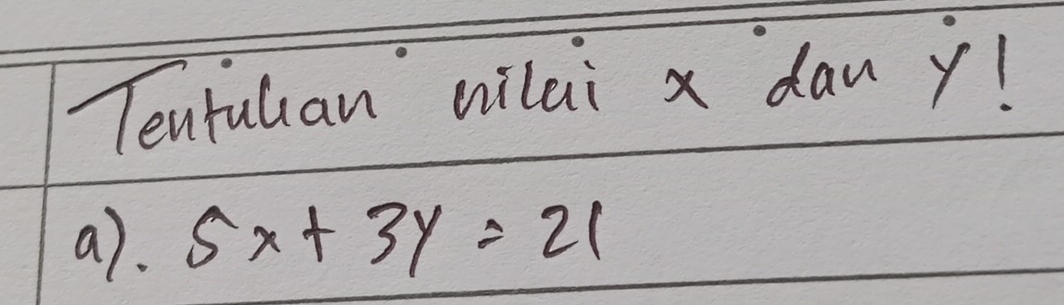 Tentukan nilai x dan y!
a). 5x + 3y = 21